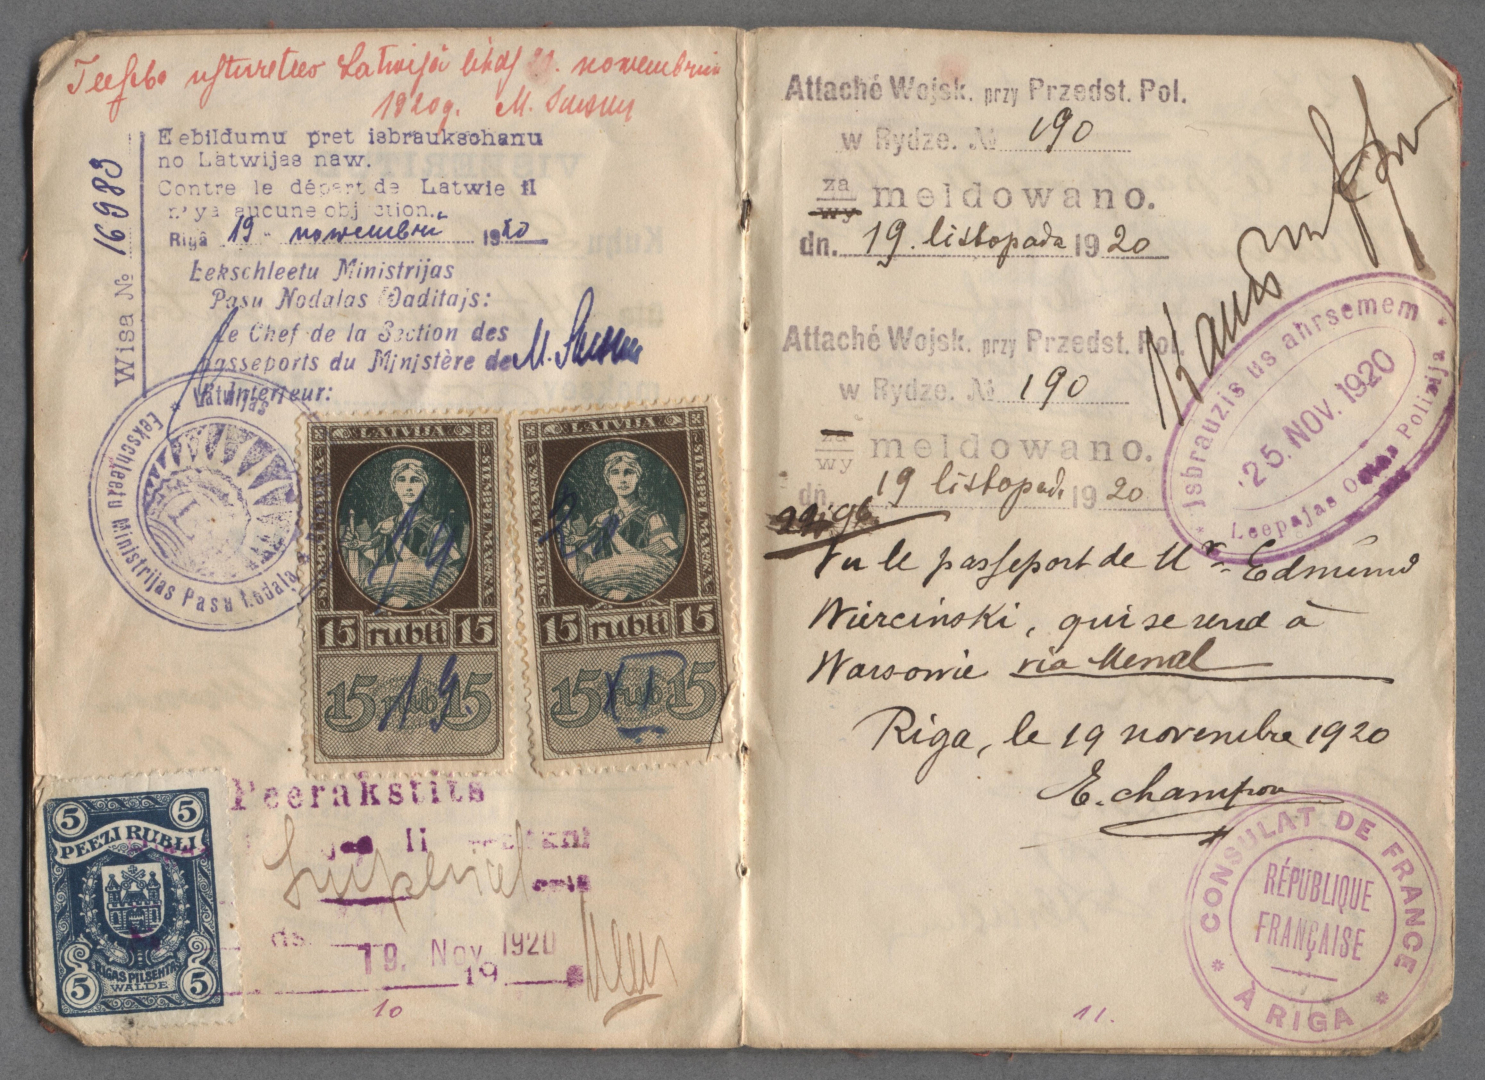 Latwijā 21. novembrim
1920g.
Wisa № 16983
Eebildumu pret isbraukschanu
no Latwijas naw.
Contre le départ de Latwie il
n'y a aucune objection.
Rigâ 19 nowembrī 1920
Eekschleetu Ministrijas
Pasu Nodalas Waditajs:
Le Chef de la Section des
passeports du Ministère de
l'Interieur:
Latwijas
Eekschleetu Ministrijas Pasu Nodaļa
LATVIJA
SIEMPELMARKA
SIEMPELMARKA
15 rubli 15
15 rubļi 15
19
19
LATVIJA
SIEMPELMARKA
SIEMPELMARKA
15 rubli 15
15 rubļi 15
XI
5 5
PEEZI RUBLI
RIGAS PILSEHTAS
WALDE
5 5
Peerakstits
II
18. Nov. 1920
19
10
Attaché Wojsk. przy Przedst. Pol.
w Rydze. № 190
za
wy meldowano.
dn. 19. listopada 1920
Attaché Wojsk. przy Przedst. Pol.
w Rydze. № 190
za
wy meldowano.
dn. 19 listopada 1920
Isbrauzis us ahrsemem
25. NOV. 1920
Leepajas Ostas Polizija
Vu le passeport de Mr. Edmund
Wiercinski, qui se rend à
Warsowie via Memel
Riga, le 19 novembre 1920
CONSULAT DE FRANCE
RÉPUBLIQUE
FRANÇAISE
À RIGA
11.